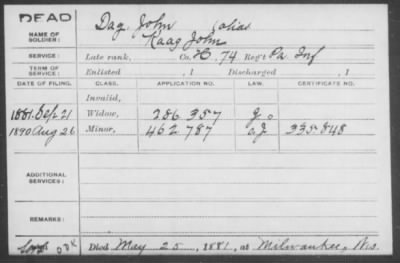 DEAD
NAME OF SOLDIER: Dag, John alias
Kaag John
SERVICE: Late rank, Co. H. 74 Reg't Pa Inf
TERM OF SERVICE: Enlisted , 1 Discharged , 1
DATE OF FILING. CLASS. APPLICATION NO. LAW. CERTIFICATE NO.
Invalid,
1881. Sep. 21 Widow, 286 357
1890 Aug 26 Minor, 462 787 335848
ADDITIONAL SERVICES:
REMARKS:
Died May 25, 1881, at Milwaukee, Wis.